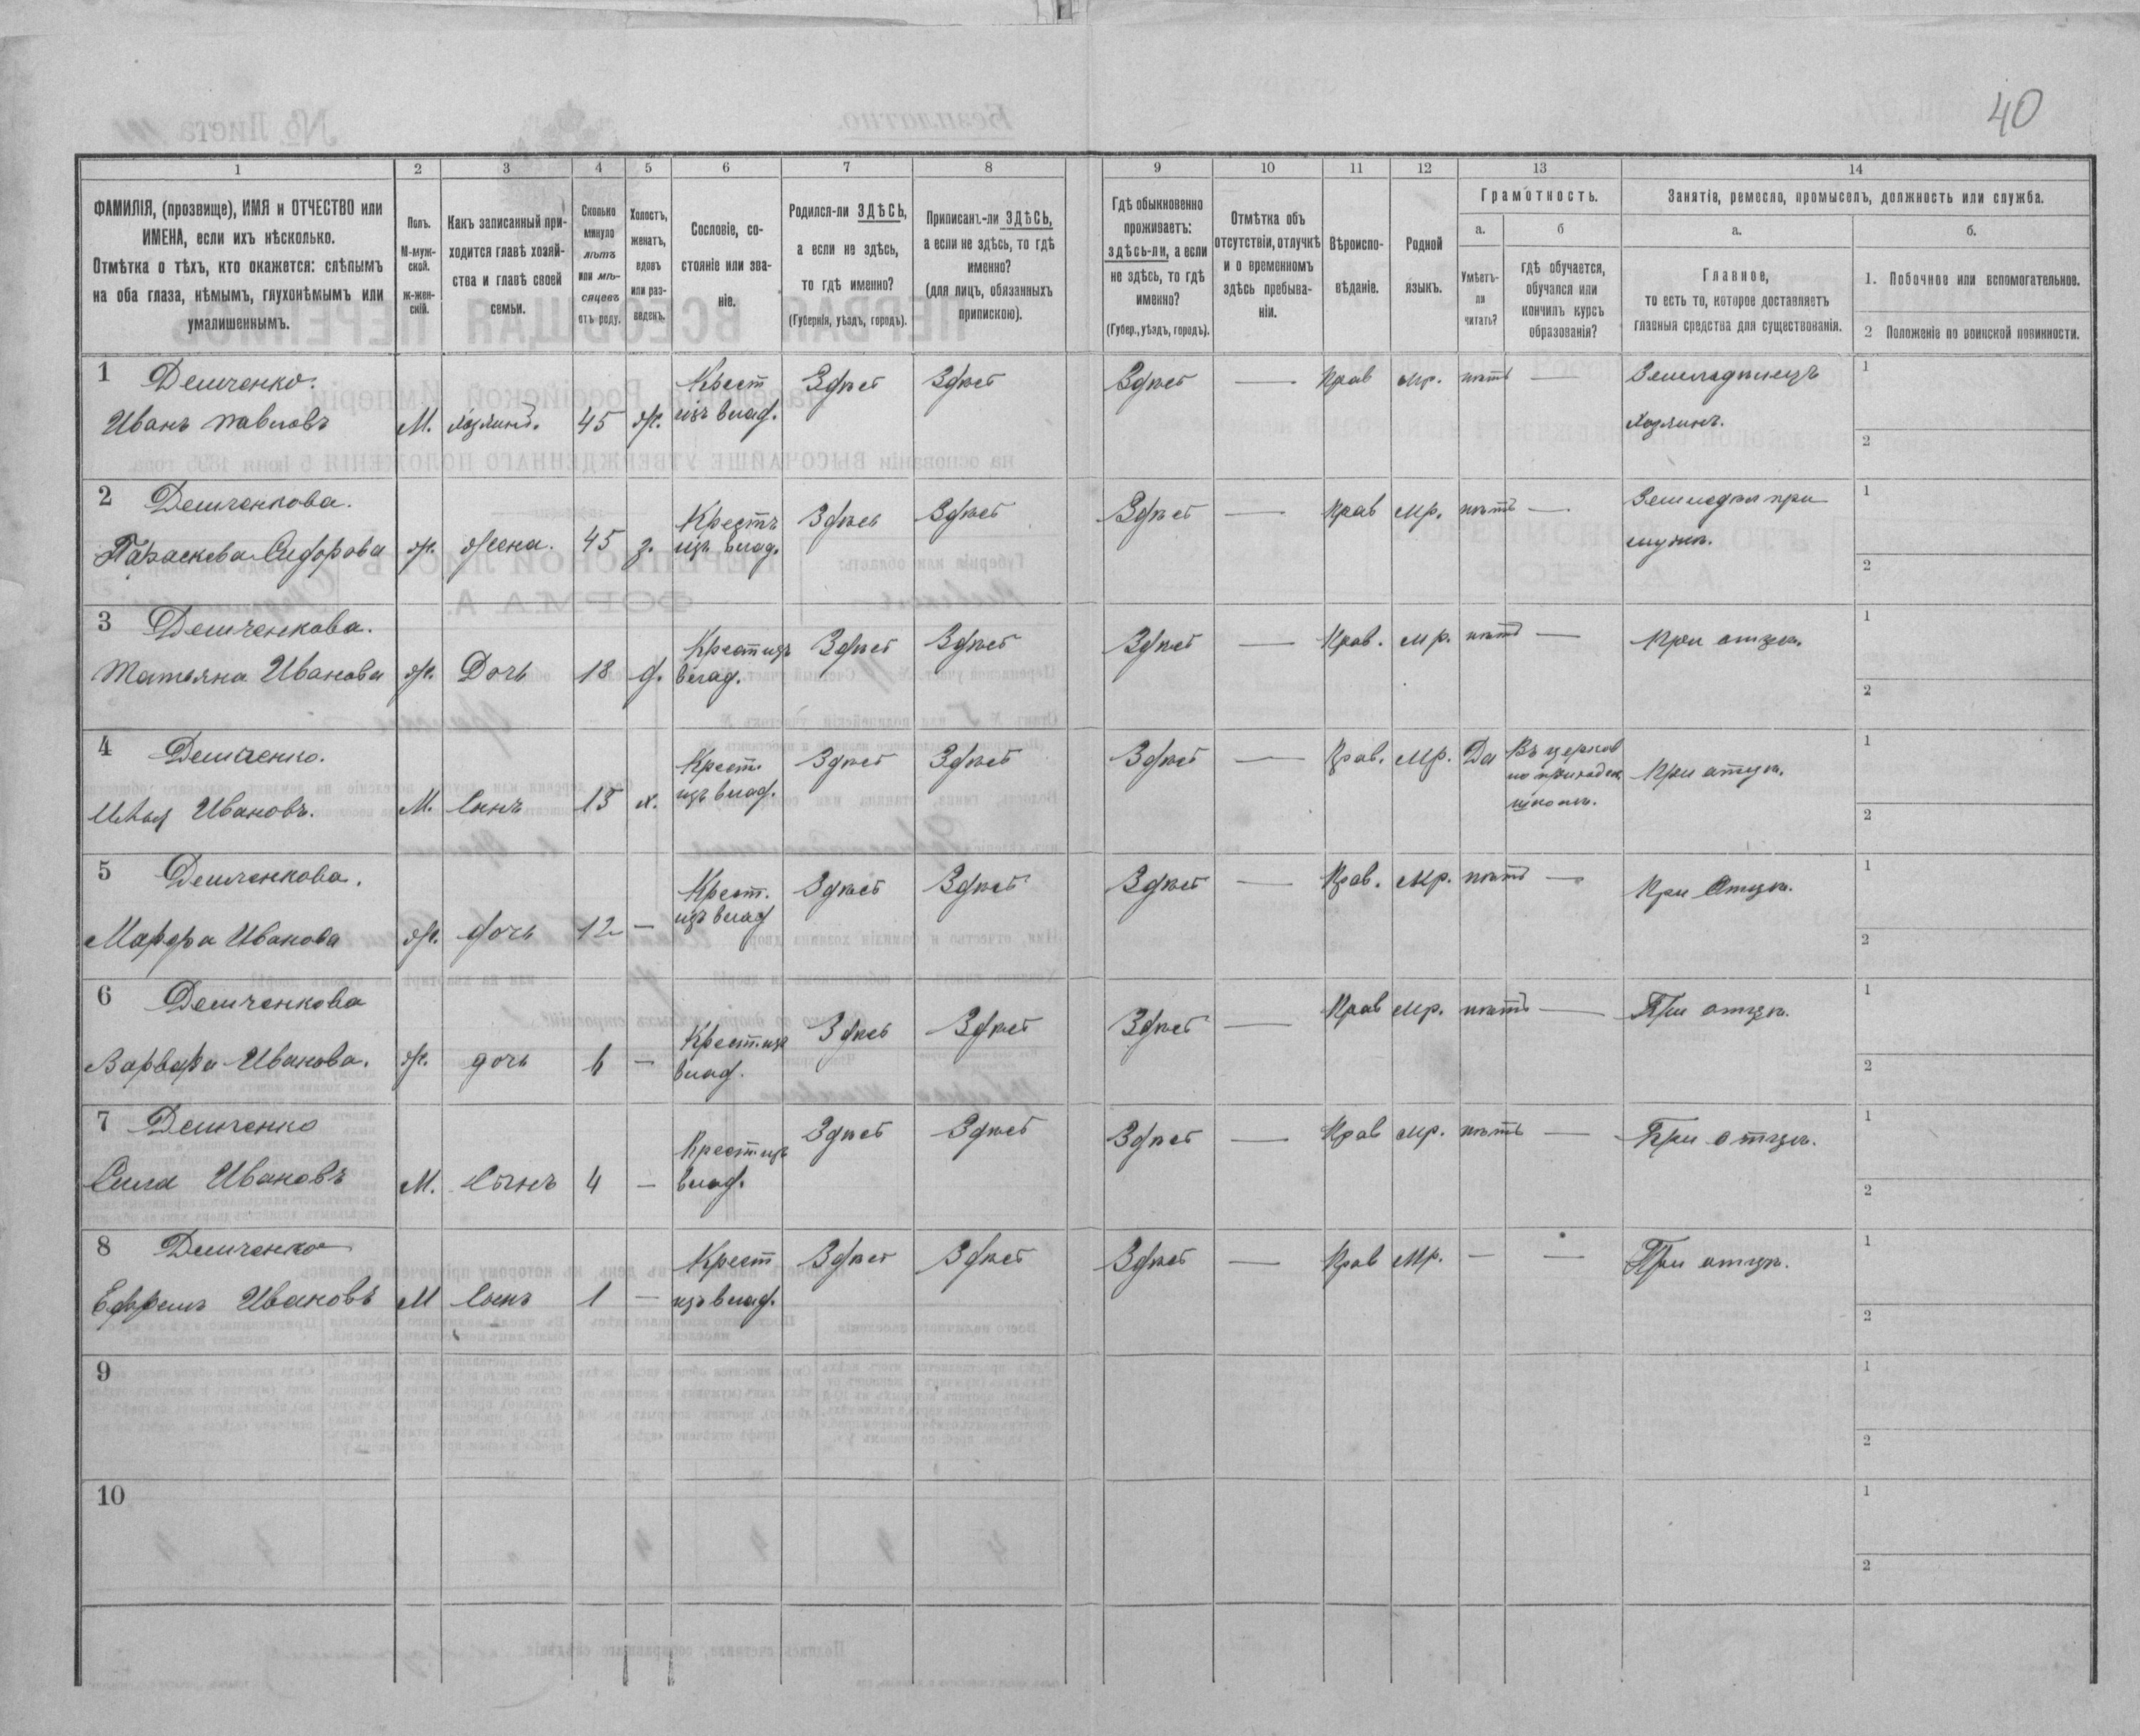 40
1
2
3
4
5
6
7
8
9
10
11
12
13
14
ФАМИЛІЯ, (прозвище), ИМЯ и ОТЧЕСТВО или
ИМЕНА, если ихъ нѣсколько.
Отмѣтка о тѣхъ, кто окажется: слѣпымъ
на оба глаза, нѣмымъ, глухонѣмымъ или
умалишеннымъ.
Полъ.
М-муж-
ской.
Ж-жен-
скій.
Какъ записанный при-
ходится главѣ хозяй-
ства и главѣ своей
семьи.
Сколько
минуло
лѣтъ
или мѣ-
сяцевъ
отъ роду.
Холостъ,
женатъ,
вдовъ
или раз-
веденъ.
Сословіе, со-
стояніе или зва-
ніе.
Родился-ли ЗДѢСЬ,
а если не здѣсь,
то гдѣ именно?
(Губернія, уѣздъ, городъ).
Приписанъ-ли ЗДѢСЬ,
а если не здѣсь, то гдѣ
именно?
(для лицъ, обязанныхъ
припискою).
Гдѣ обыкновенно
проживаетъ:
здѣсь-ли, а если
не здѣсь, то гдѣ
именно?
(Губер., уѣздъ, городъ).
Отмѣтка объ
отсутствіи, отлучкѣ
и о временномъ
здѣсь пребыва-
ніи.
Вѣроиспо-
вѣданіе.
Родной
языкъ.
Грамотность.
а.
Умѣетъ-
ли
читать?
б
гдѣ обучается,
обучался или
кончилъ курсъ
образованія?
Занятія, ремесло, промыселъ, должность или служба.
а.
Главное,
то есть то, которое доставляетъ
главныя средства для существованія.
б.
1. Побочное или вспомогательное.
2 Положеніе по воинской повинности.
1 Демченко.
Иванъ Павловъ М. хозяинъ. 45 ж. Крест изъ влад. Здѣсь Здѣсь Здѣсь — Прав мр. нѣтъ — Земледѣлецъ
хозяинъ. 1 2
2 Демченкова.
Параскева Сидорова ж. жена. 45 з. Крестъ изъ влад. Здѣсь Здѣсь Здѣсь — Прав мр. нѣтъ — Земледѣл при
мужѣ. 1 2
3 Демченкова.
Татьяна Иванова ж. Дочь 18 д. Крест изъ влад. Здѣсь Здѣсь Здѣсь — Прав. мр. нѣтъ — При отцѣ. 1 2
4 Демченко.
Илья Ивановъ. М. Сынъ 15 х. Крест. изъ влад. Здѣсь Здѣсь Здѣсь — Прав. мр. Да Въ церков
но приходск
школѣ. При отцѣ. 1 2
5 Демченкова.
Марфа Иванова ж. дочь 12 — Крест. изъ влад Здѣсь Здѣсь Здѣсь — Прав. мр. нѣтъ — При отцѣ. 1 2
6 Демченкова
Варвара Иванова. ж. дочь 6 — Крест. изъ влад. Здѣсь Здѣсь Здѣсь — Прав мр. нѣтъ — При отцѣ. 1 2
7 Демченко
Сила Ивановъ М. Сынъ 4 — Крест изъ влад. Здѣсь Здѣсь Здѣсь — Прав мр. нѣтъ — При отцѣ. 1 2
8 Демченко
Ефремъ Ивановъ М Сынъ 1 — Крест изъ влад. Здѣсь Здѣсь Здѣсь — Прав мр. — — При отцѣ. 1 2
9 1 2
10 1 2